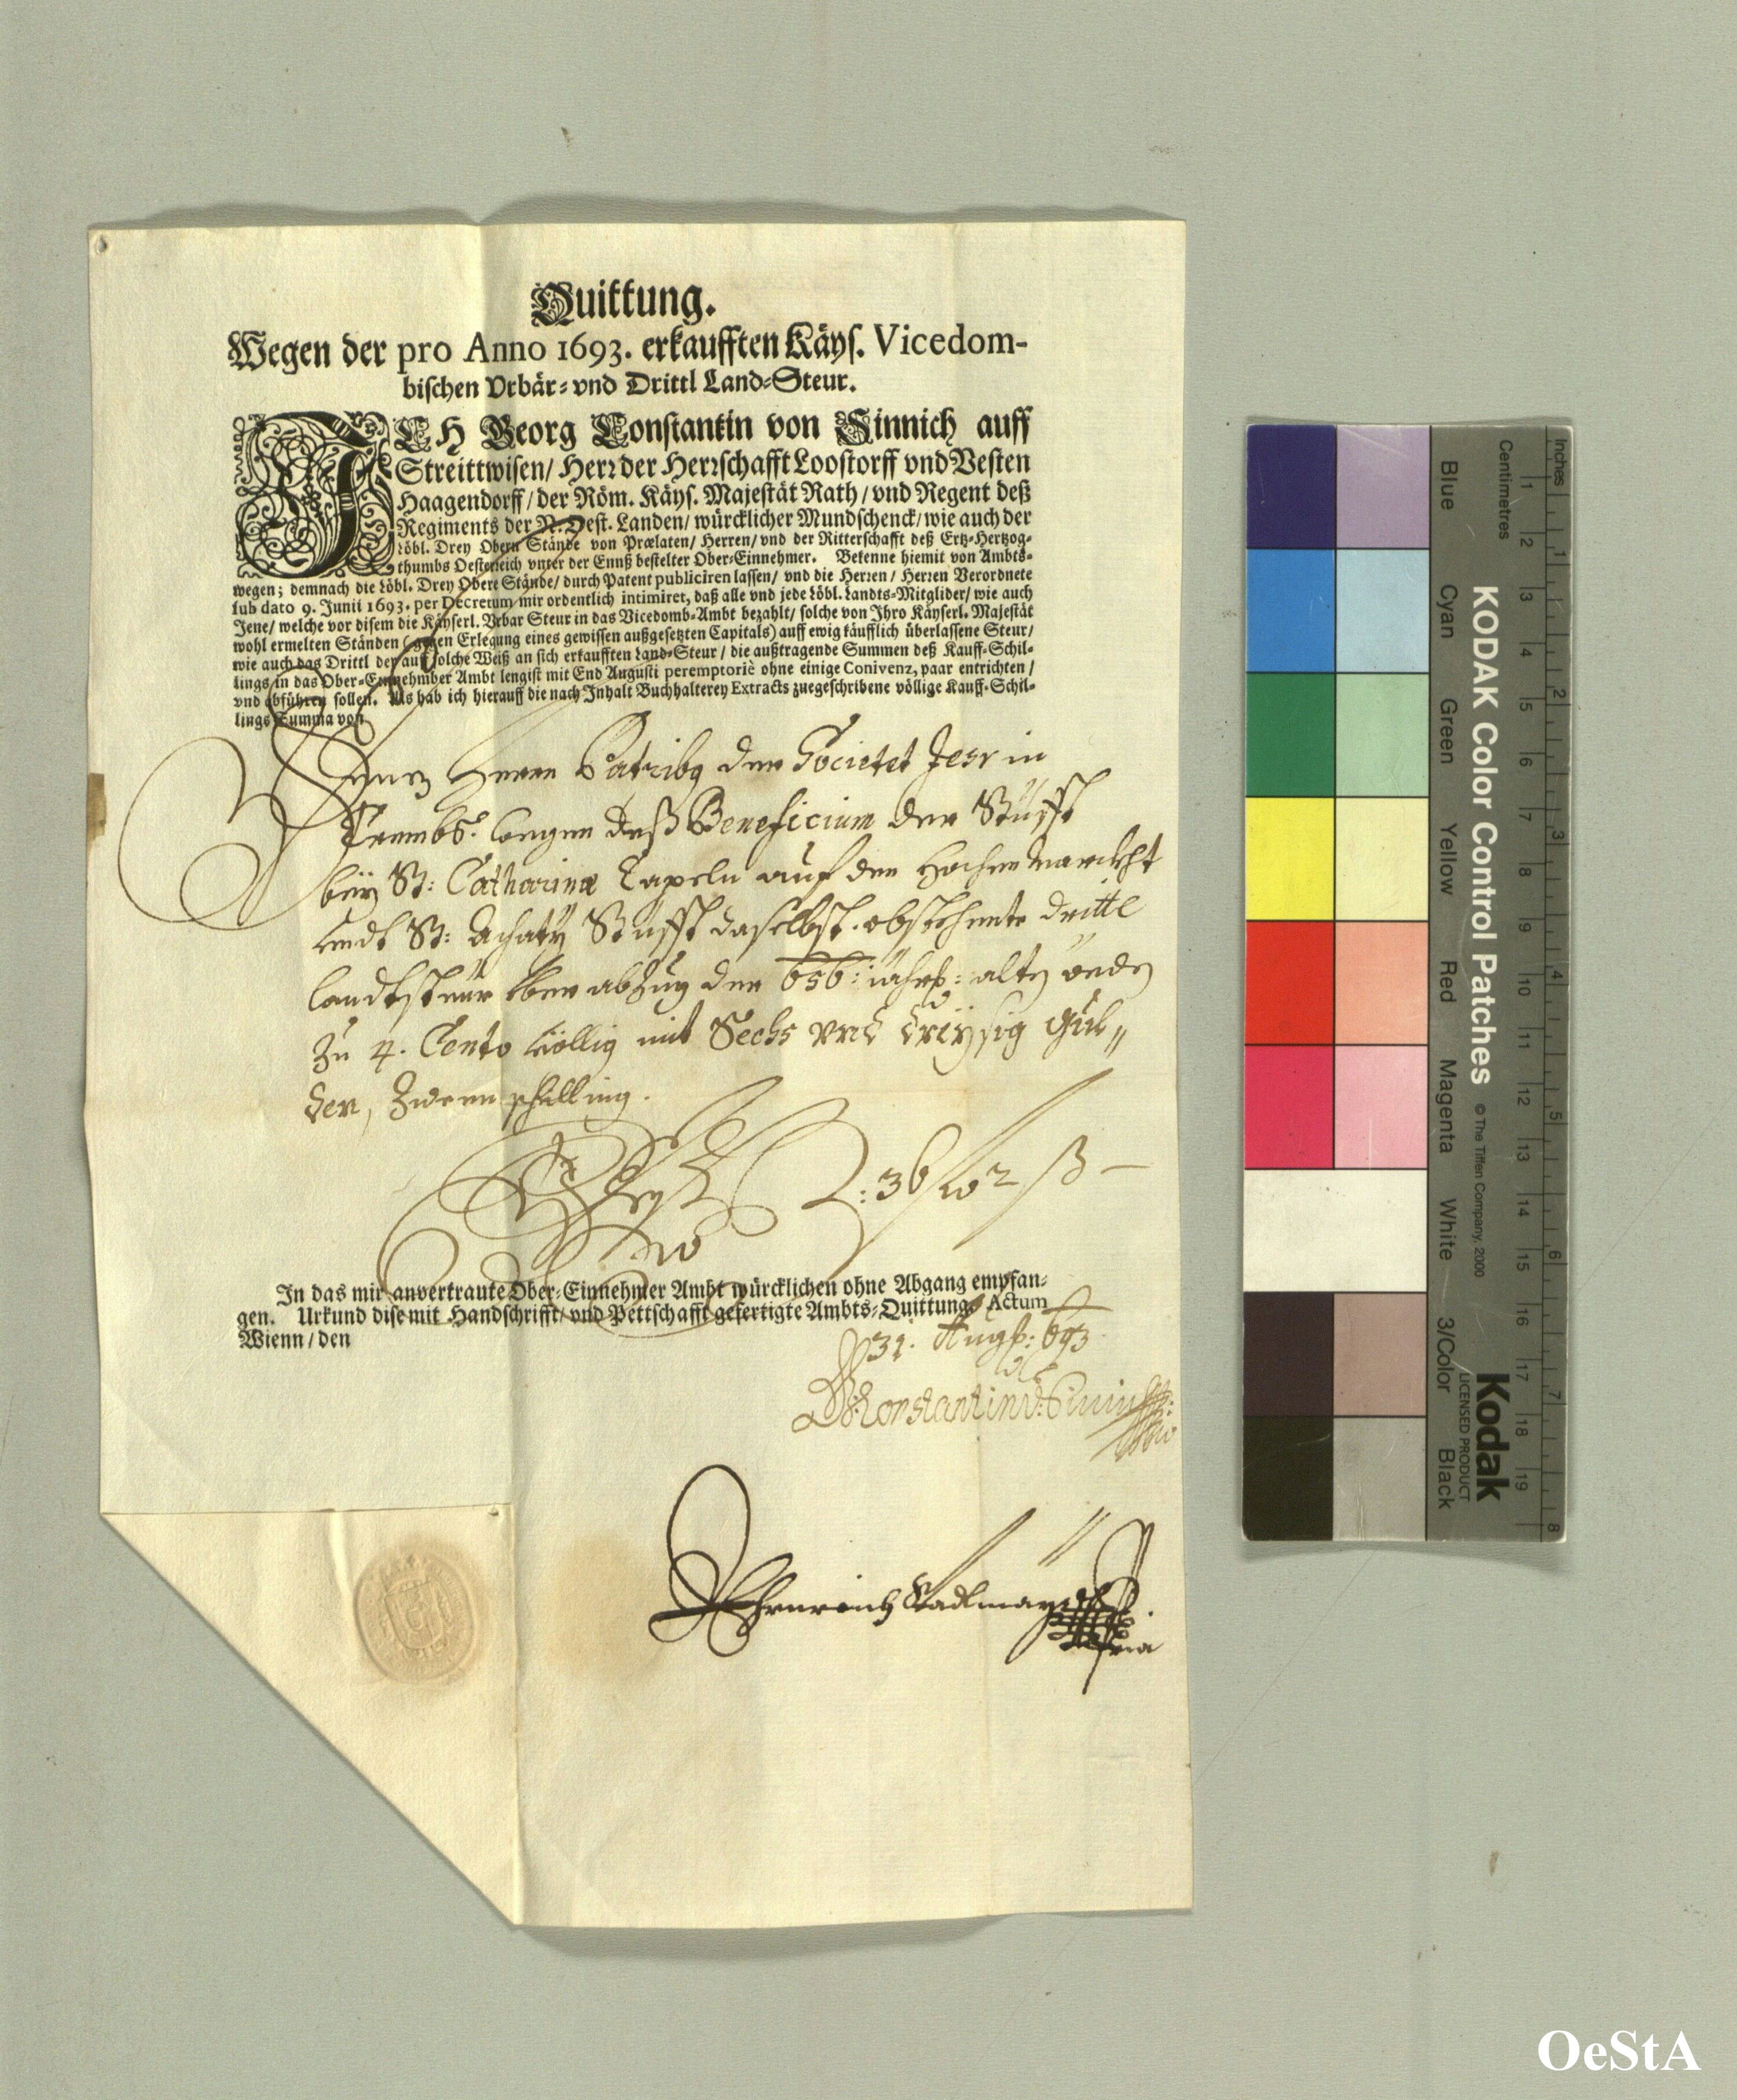 Quittung.
Wegen der pro Anno 1693. erkaufften Käys. Vicedom-
bischen Vrbär- vnd Drittl Land-Steur.
ICH Georg Constantin von Sinnich auff
Streittwisen/ Herr der Herrschafft Loostorff vnd Vesten
Haagendorff/ der Röm. Käys. Majestät Rath/ vnd Regent deß
Regiments der N. Oest. Landen/ würcklicher Mundschenck/ wie auch der
löbl. Drey Obern Stände von Prælaten/ Herren/ vnd der Ritterschafft deß Ertz-Hertzog-
thumbs Oesterreich vnter der Ennß bestelter Ober-Einnehmer. Bekenne hiemit von Ambts-
wegen; demnach die löbl. Drey Obere Stände/ durch Patent publiciren lassen/ vnd die Herren/ Herren Verordnete
sub dato 9. Junii 1693. per Decretum mir ordentlich intimiret, daß alle vnd jede löbl. Landts-Mitglider/ wie auch
Jene/ welche vor disem die Käyserl. Vrbar Steur in das Vicedomb-Ambt bezahlt/ solche von Ihro Käyserl. Majestät
wohl ermelten Ständen (gegen Erlegung eines gewissen außgesetzten Capitals) auff ewig käufflich überlassene Steur/
wie auch das Drittl der auf solche Weiß an sich erkaufften Land-Steur/ die außtragende Summen deß Kauff-Schil-
lings in das Ober-Einnehmber Ambt lengist mit End Augusti peremptoriè ohne einige Conivenz, paar entrichten/
vnd abführen sollen. Als hab ich hierauff die nach Inhalt Buchhalterey Extracts zuegeschribene völlige Kauff-Schil-
lings Summa von
Herrn Patribq der Societet Jesv in
Crembs. wegen deß Beneficium der Stüfft
beÿ St: Catharinæ Capeln auf den Hochenmarckht
vndt St: Achatÿ Stüfft daselbst. dritte
landtsteur abzug der 656: alten
zu 4. Cento völlig mit Sechs vnd dreÿsig Gul„
den, Zween schilling.
: 36 f 2 ß —
In das mir anvertraute Ober-Einnehmer Ambt würcklichen ohne Abgang empfan-
gen. Urkund dise mit Handschrifft/ vnd Pettschafft gefertigte Ambts-Quittung. Actum
Wienn/ den
31. Aug: 693.
Constantin v: Sinnich
Stadlmayr
KODAK Color Control Patches © The Tiffen Company, 2000
Kodak
LICENSED PRODUCT
Inches 1 2 3 4 5 6 7 8
Centimetres 1 2 3 4 5 6 7 8 9 10 11 12 13 14 15 16 17 18 19
Blue Cyan Green Yellow Red Magenta White 3/Color Black
OeStA